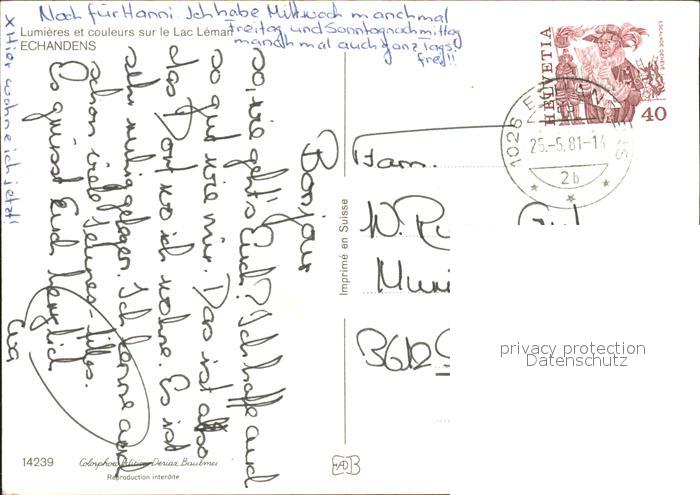 Noch für Hanni. Ich habe Mittwoch manchmal
Freitag und Sonntagnachmittag
manchmal auch ganz tags
frei!!
x Hier wohne ich jetzt!
Lumières et couleurs sur le Lac Léman
ECHANDENS
Bonjour
so, wie geht's Euch? Ich hoffe auch
so gut wie mir. Das ist also
das Dorf wo ich wohne. Es ist
sehr ruhig gelegen. Ich kenne auch
schon viele jeunes-filles.
Es grüsst Euch herzlich
Imprimé en Suisse
Fam.
W.
3612
HELVETIA
ESCALADE GENÈVE
40
1026
25.-5.81-14
2b
privacy protection
Datenschutz
14239
Colorphoto Edition Deriaz Baulmes
Reproduction interdite